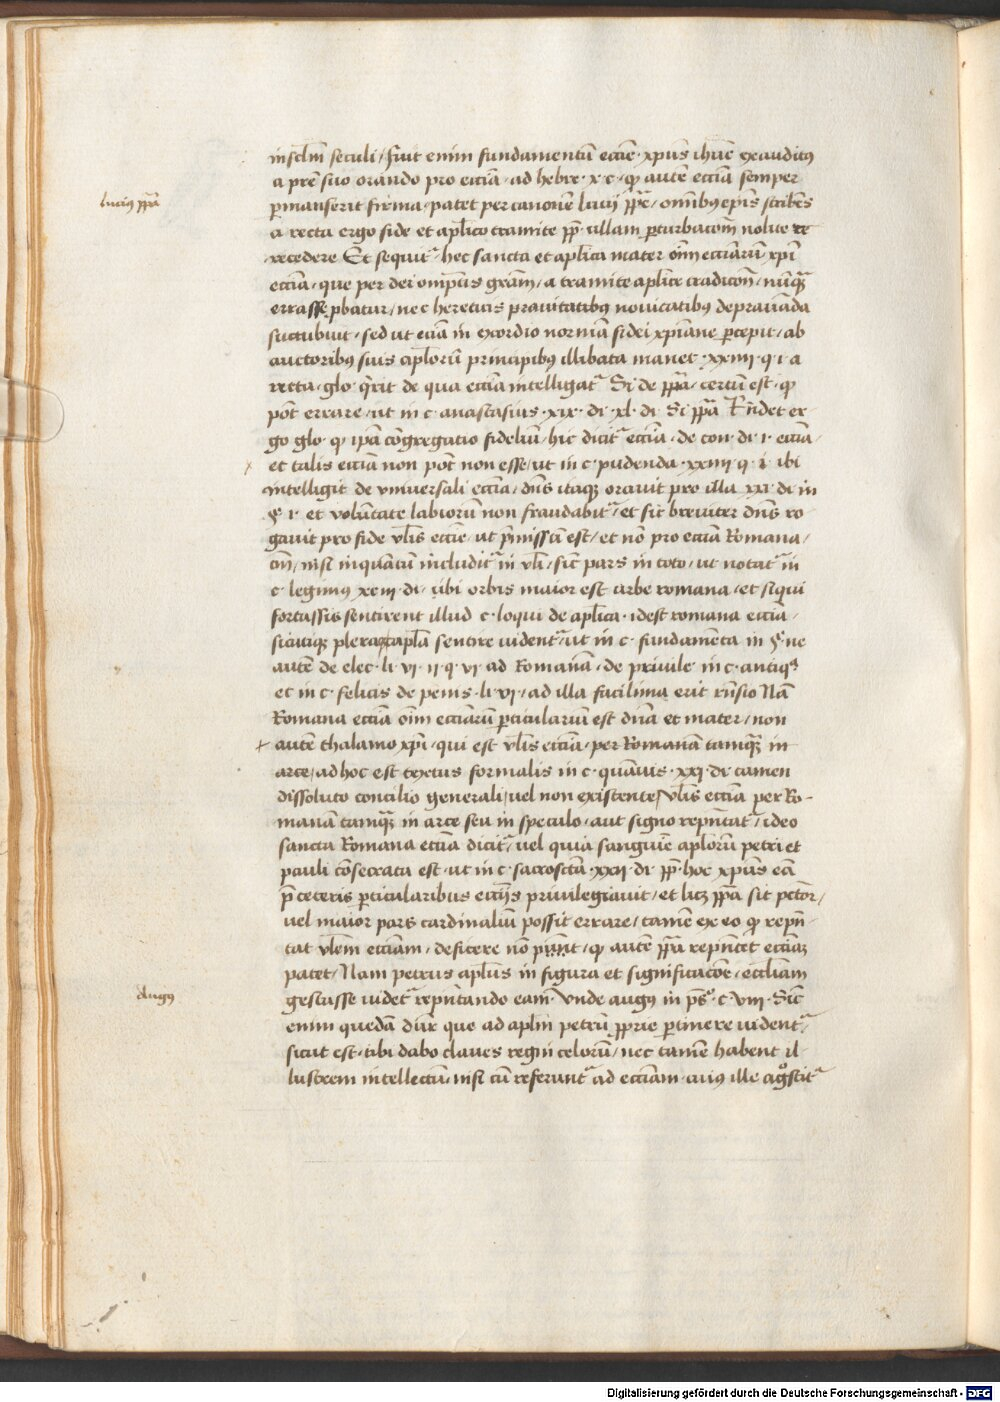 in sclm seculi / fuit enim fundamentū eccie · xpus ihūs exauditus
a prē suo orando pro eccīa · ad hebre · x · c · qꝫ autē eccīa semper
lucius ppā
ꝑmanserit firma · patet per canonē lucij ppē / omībꝰ epīs scribēs
a recta ergo fide et aplico tramite pp̄ · ullam ꝑturbacōm nolite re
recedere Et sequitᷣ · hec sancta et aplica mater oīm ecciarū xpī
eccīa / que per dei omptīs gram / a tramite aplice tradicōn / nūqꝫ
errasse ꝓbatur / nec hereticis pravitatibꝰ novitatibꝰ depravāda
succubuit / sed ut eciā in exordio normā fidei xpiane ꝑcepit / ab
auctoribꝰ suis aplorū principibꝰ illibata manet · xxiiii · q · i · a
recta / glo · q̄rit de qua eccīa intelligatᷣ Si de ppā / certū est · qꝫ
pōt errare / ut in c · anastasius · xix · di · xl · di · Si ppā Rñdet er-
go glo · qꝫ ipā cōgregatio fideliū / hic dicitᷣ eccīa · de con · di · i · eccīa /
et talis eccīa non pōt non esse / ut in c · pudenda · xxiiii · q · i · ibi
intelligit de vniuersali eccīa / dn̄s itaqꝫ oravit pro illa xxi · di · in
§ · i · et volūtate labiorum non fraudabitᷣ / et sic breviter dn̄s ro
gavit pro fide vlis eccīe / ut p̄missū est / et nō pro eccīa Romana /
cū / nisi inquātū includitᷣ in vli / sic pars in toto / ut notatᷣ in
c · legimus xciii · di · ubi orbis maior est urbe romana / et siqui
fortassis sentirent illud c · loqui de aplica · idest romana eccīa /
sicutiqꝫ pleraqꝫ capla sentire videntᷣ / ut in c · fundamēta in § · ne
autē de elec · li · vi · ii · q · vi · ad Romanā · de privile · in c · antiqᵃ
et in c · felicis de penis · li · vi · / ad illa facilima erit rūsio Nā
Romana eccīa oīm ecciarū ꝑticularium est dn̄a et mater / non
autē thalamo xpi / qui est vlis eccīa / per Romanā tamqꝫ in
arce / ad hoc est textus formalis in c · quāuis · xxi · di · tamen
dissoluto concilio generali / vel non existente / vlis eccīa per Ro-
manā tamqꝫ in arce seu in speculo / aut signo repn̄tatᷣ / ideo
sancta Romana eccīa dicitᷣ / vel quia sanguīe aplorū petri et
pauli cōsecrata est · ut in c · sacroscta · xxii · di · pp̄ · hoc xpūs eā
p̄ ceteris ꝑticularibus ecciis privilegiavit / et licꝫ ppā sit pctor /
vel maior pars cardinaliū possit errare / tamē ex eo qꝫ repn̄-
tat vlem eccīam / deficere nō pn̄t / qꝫ autē ppā repn̄tet eccīaꝫ
patet / Nam petrus aplus in figura et significacōe / eccliam
Augus
gestasse videtᷣ repn̄tando eam · Vnde augus in ps° · c · viii · Sic
enim quedā dn̄r que ad aplm petrū ꝓprie ꝑtinere videntᷣ /
sicut est · tibi dabo claves regni celorū / nec tamē habent il-
lustrem intellectū / nisi cū referuntᷣ ad eccīam · cuius ille agoscitᷣ
Digitalisierung gefördert durch die Deutsche Forschungsgemeinschaft - DFG